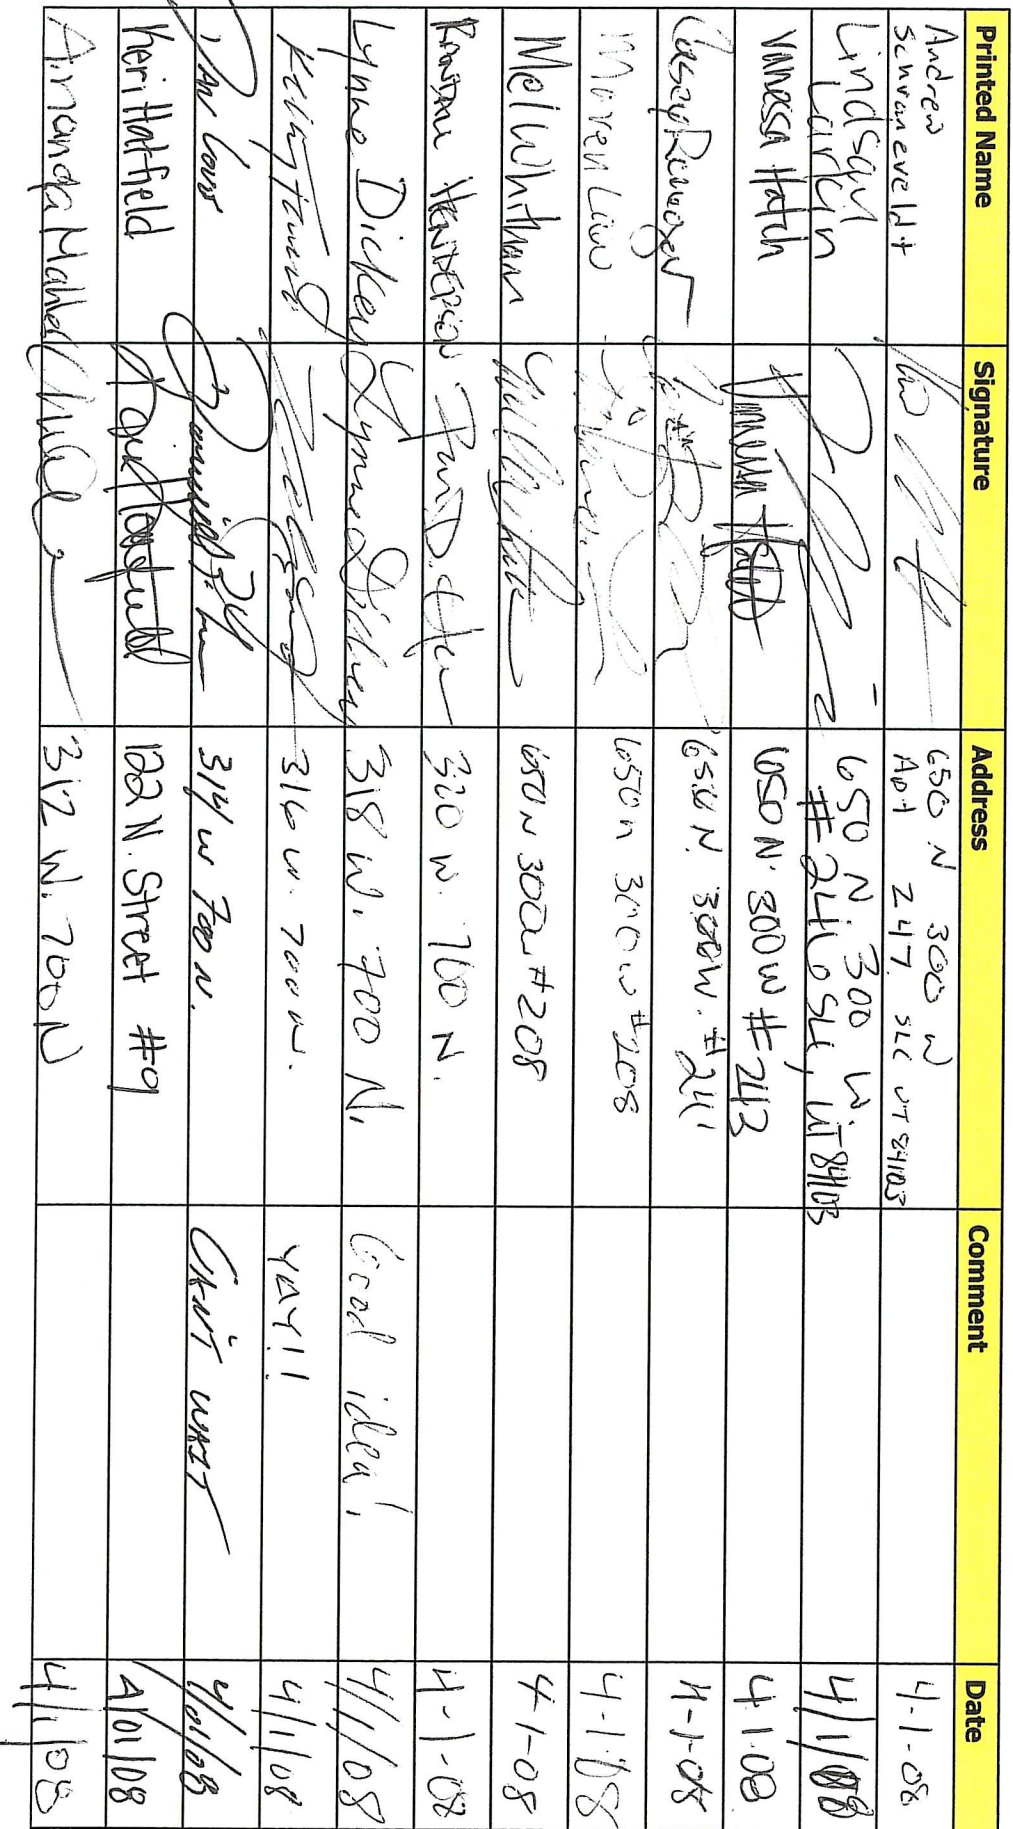 Printed Name Signature Address Comment Date
Andrew
Schvaneveldt
650 N 300 W
Apt 247 SLC UT 84103
4-1-08
Lindsay
Larkin
650 N. 300 W
#246 SLC, UT 84103
4/1/08
Vanessa Hatch Vanessa Hatch 650 N. 300 W #243 4.1.08
Casey 650 N. 300W. #241 4-1-08
Maren 650 n 300 w #208 4-1-08
Mel Whitham 650 N 300w #208 4-1-08
HENDERSON 320 W. 700 N. 4-1-08
Lynne Dickey Lynne Dickey 318 W. 700 N. Good idea! 4/1/08
316 W. 700 N. YAY!! 4/1/08
DAN 314 W 700 N. CAN'T WAIT 4/01/08
Keri Hatfield 122 N. Street #9 4/01/08
Amanda 312 W. 700 N 4/1/08